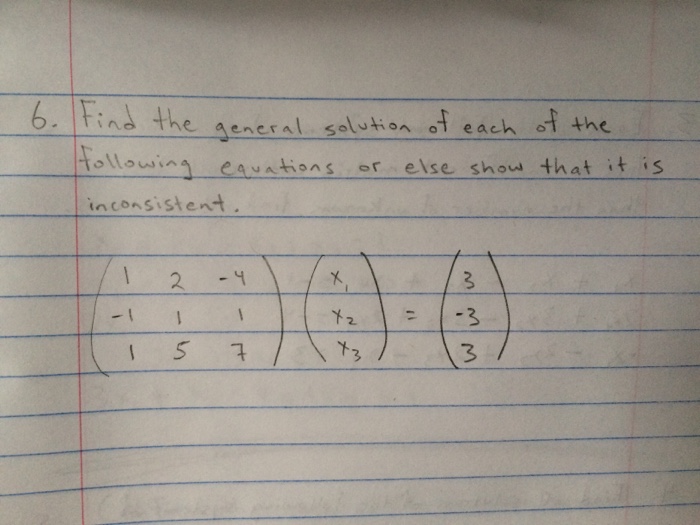 6. Find the general solution of each of the
following equations or else show that it is
inconsistent.
1 2 -4 x₁ 3
-1 1 1 x₂ = -3
1 5 7 x₃ 3